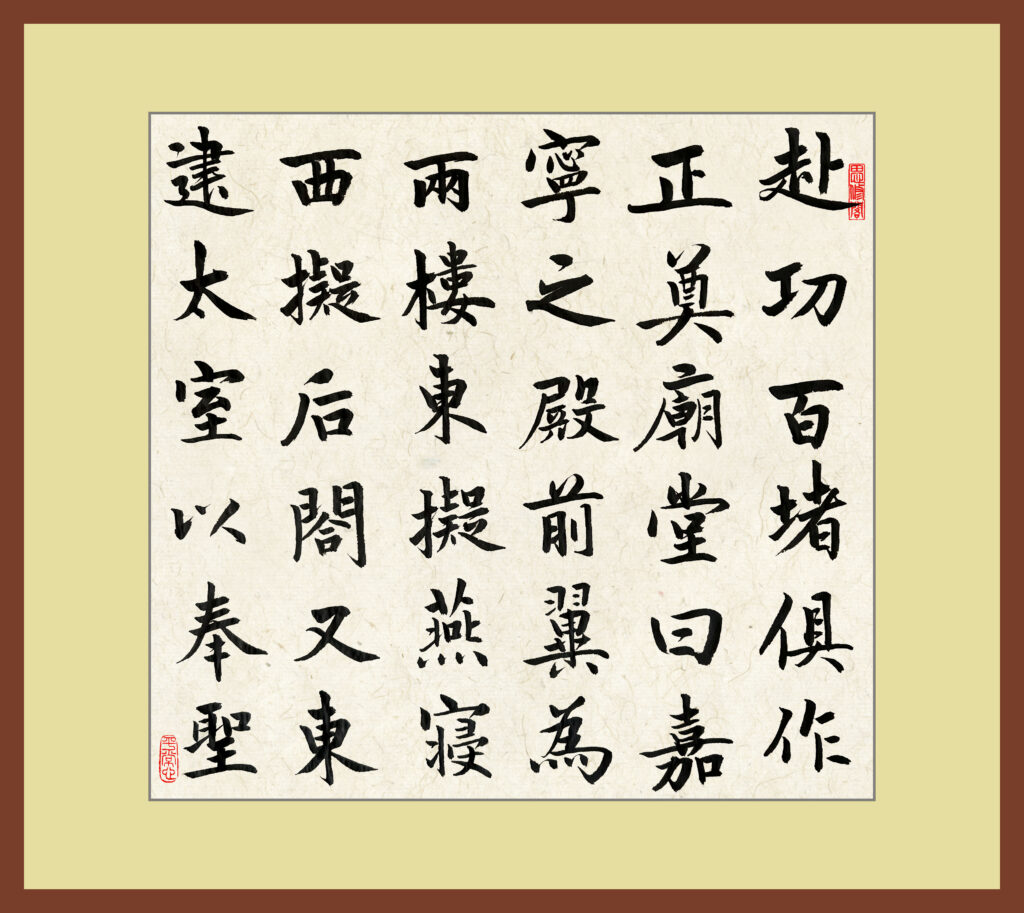 赴功百堵俱作
正奠廟堂曰嘉
寧之殿前翼為
兩樓東擬燕寢
西擬后閤又東
建太室以奉聖